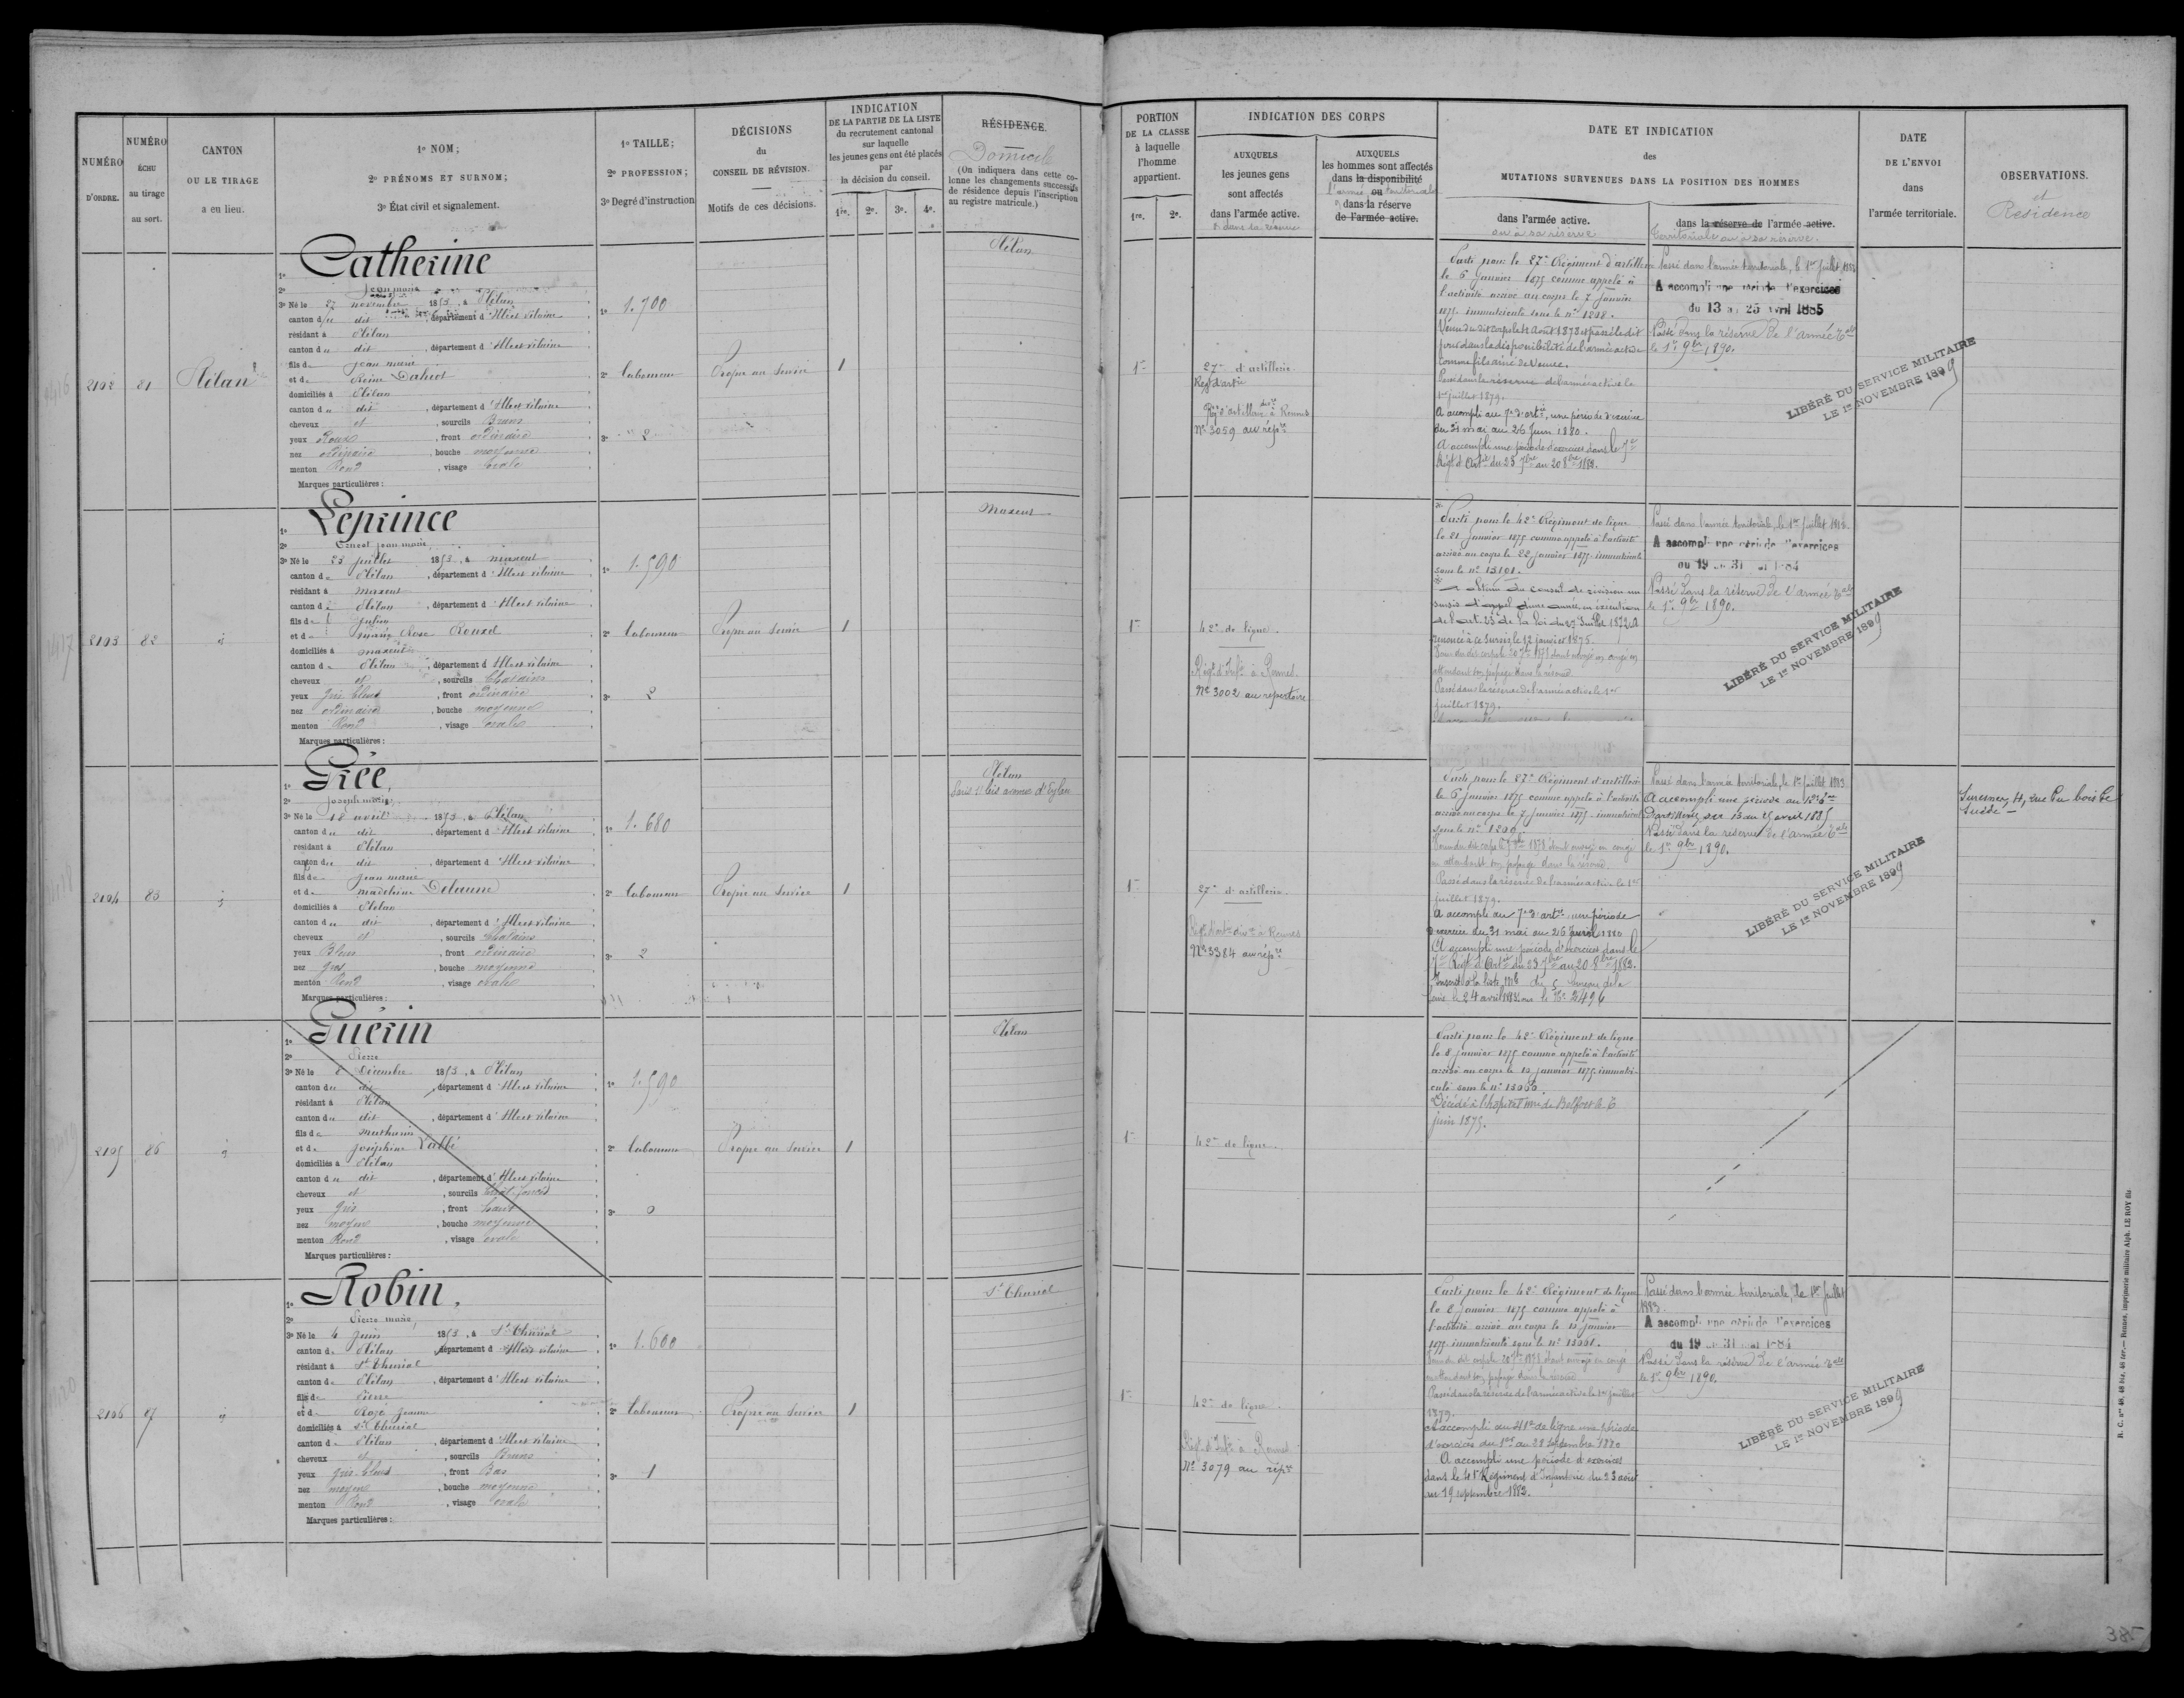 NUMÉRO D'ORDRE.
NUMÉRO ÉCHU au tirage au sort.
CANTON OU LE TIRAGE a eu lieu.
1º NOM;
2º PRÉNOMS ET SURNOM;
3º État civil et signalement.
1º TAILLE;
2º PROFESSION;
3º Degré d'instruction
DÉCISIONS du CONSEIL DE RÉVISION.
Motifs de ces décisions.
INDICATION
DE LA PARTIE DE LA LISTE
du recrutement cantonal
sur laquelle
les jeunes gens ont été placés
par
la décision du conseil.
1re. 2e. 3e. 4e.
RÉSIDENCE.
Domicile
(On indiquera dans cette co-
lonne les changements successifs
de résidence depuis l'inscription
au registre matricule.)
2102
81
Plélan
1º Catherine
2º Jean marie
3º Né le 27 novembre 1853, à Plélan
canton du dit, département d'Ille et vilaine
résidant à Plélan
canton du dit, département d'Ille et vilaine
fils de Jean marie
et de Reine
domiciliés à Plélan
canton du dit, département d'Ille et vilaine
cheveux et, sourcils Bruns
yeux Roux, front ordinaire
nez ordinaire, bouche moyenne
menton Rond, visage ovale
Marques particulières:
1º 1.700
2º Laboureur
3º 2
Propre au Service
1
Plélan
2103
82
id
1º Leprince
2º Ernest Jean marie
3º Né le 23 juillet 1853, à maxent
canton de Plélan, département d'Ille et vilaine
résidant à maxent
canton de Plélan, département d'Ille et vilaine
fils de Julien
et de marie Rose Rouxel
domiciliés à maxent
canton de Plélan, département d'Ille et vilaine
cheveux et, sourcils Chatains
yeux gris bleus, front ordinaire
nez ordinaire, bouche moyenne
menton Rond, visage ovale
Marques particulières:
1º 1.590
2º Laboureur
3º 2
Propre au Service
1
maxent
2104
83
id
1º Grée,
2º Joseph marie
3º Né le 18 avril 1853, à Plélan
canton du dit, département d'Ille et vilaine
résidant à Plélan
canton du dit, département d'Ille et vilaine
fils de Jean marie
et de madeleine Delaune
domiciliés à Plélan
canton du dit, département d'Ille et vilaine
cheveux et, sourcils Chatains
yeux Bleus, front ordinaire
nez gros, bouche moyenne
menton Rond, visage ovale
Marques particulières:
1º 1.680
2º Laboureur
3º 2
Propre au Service
1
Plélan
Paris 11 bis avenue d'Eylau
2105
86
id
1º Guérin
2º Pierre
3º Né le 8 Décembre 1853, à Plélan
canton du dit, département d'Ille et vilaine
résidant à Plélan
canton du dit, département d'Ille et vilaine
fils de mathurin
et de Joséphine Labbé
domiciliés à Plélan
canton du dit, département d'Ille et vilaine
cheveux et, sourcils
yeux gris, front haut
nez moyen, bouche moyenne
menton Rond, visage ovale
Marques particulières:
1º 1.590
2º Laboureur
3º 0
Propre au Service
1
Plélan
2106
87
id
1º Robin,
2º Pierre marie
3º Né le 4 juin 1853, à St Thurial
canton de Plélan, département d'Ille et vilaine
résidant à St Thurial
canton de Plélan, département d'Ille et vilaine
fils de Pierre
et de Rozé Jeanne
domiciliés à St Thurial
canton de Plélan, département d'Ille et vilaine
cheveux et, sourcils Bruns
yeux gris-bleus, front Bas
nez moyen, bouche moyenne
menton Rond, visage ovale
Marques particulières:
1º 1.600
2º Laboureur
3º 1
Propre au Service
1
St Thurial
PORTION DE LA CLASSE à laquelle l'homme appartient.
1re. 2e.
INDICATION DES CORPS
AUXQUELS les jeunes gens sont affectés dans l'armée active.
& dans sa réserve
AUXQUELS les hommes sont affectés dans la disponibilité ou
l'armée territoriale
& dans la réserve de l'armée active.
DATE ET INDICATION
des
MUTATIONS SURVENUES DANS LA POSITION DES HOMMES
dans l'armée active.
ou à sa réserve
dans la réserve de l'armée active.
Territoriale ou à sa réserve.
DATE DE L'ENVOI dans l'armée territoriale.
OBSERVATIONS.
et Résidence
1re
27e d'artillerie
Regt d'artie
Rgt d'artillerie à Rennes
Nº 3059 au répre
Parti pour le 27e Régiment d'artillerie
le 6 janvier 1875 comme appelé à
l'activité arrivé au corps le 7 janvier
1875 immatriculé sous le nº 1298.
Venu du dit corps le 11 Août 1878 et passé le dit
jour dans la disponibilité de l'armée active
comme fils aîné de veuve.
Passé dans la réserve de l'armée active le
1er juillet 1879.
A accompli au 7e d'artie, une période d'exercice
du 31 mai au 26 Juin 1880.
A accompli une période d'exercices dans le 7e
Régt d'Artie du 23 7bre au 20 8bre 1882.
Passé dans l'armée territoriale, le 1er Juillet 1883
A accompli une période d'exercices
du 13 au 25 avril 1885
Passé dans la réserve de l'armée tale
le 1er 9bre 1890.
LIBÉRÉ DU SERVICE MILITAIRE
LE 1er NOVEMBRE 1899
1re
42e de ligne
Régt d'Infie à Rennes
Nº 3002 au répertoire
Parti pour le 42e Régiment de ligne
le 21 janvier 1875 comme appelé à l'activité
arrivé au corps le 22 janvier 1875 immatriculé
sous le nº 13101.
a obtenu du conseil de révision un
sursis d'appel d'une année, en exécution
de l'art. 23 de la loi du 27 Juillet 1872. A
renoncé à ce sursis le 12 janvier 1875.
attendant son passage dans la réserve
Passé dans la réserve de l'armée active le 1er
juillet 1879.
Passé dans l'armée territoriale, le 1er Juillet 1883.
A accompli une période d'exercices
du 19 au 31 mai 1884
Passé dans la réserve de l'armée tale
le 1er 9bre 1890.
LIBÉRÉ DU SERVICE MILITAIRE
LE 1er NOVEMBRE 1899
1re
27e d'artillerie
Régt d'artie à Rennes
Nº 3384 au répre
Parti pour le 27e Régiment d'artillerie
le 6 janvier 1875 comme appelé à l'activité
arrivé au corps le 7 janvier 1875 immatriculé
sous le nº 1299.
en attendant son passage dans la réserve
Passé dans la réserve de l'armée active le 1er
juillet 1879.
A accompli au 7e d'artie une période
d'exercice du 31 mai au 26 Juin 1880
A accompli une période d'exercices dans le
7e Régt d'Artie du 23 7bre au 20 8bre 1882.
Seine le 24 avril sous le Nº 2496
Passé dans l'armée territoriale, le 1er Juillet 1883
A accompli une période au
du 13 au 25 avril 1885
Passé dans la réserve de l'armée tale
le 1er 9bre 1890.
LIBÉRÉ DU SERVICE MILITAIRE
LE 1er NOVEMBRE 1899
Suresnes, 4, rue du bois
1re
42e de ligne
Parti pour le 42e Régiment de ligne
le 8 janvier 1875 comme appelé à l'activité
arrivé au corps le 12 janvier 1875 immatri-
culé sous le nº 13060
Décédé à l'hôpital mre de Belfort le 6
juin 1875.
1re
42e de ligne
Régt d'Infie à Rennes
Nº 3079 au répre
Parti pour le 42e Régiment de ligne
le 8 janvier 1875 comme appelé à
l'activité arrivé au corps le 12 janvier
1875 immatriculé sous le nº 13061.
en attendant son passage dans la réserve
Passé dans la réserve de l'armée active le 1er juillet
1879.
A accompli au 41e de ligne une période
d'exercices du 1er au 28 septembre 1880
A accompli une période d'exercices
dans le 41e Régiment d'Infanterie du 23 août
au 19 septembre 1882.
Passé dans l'armée territoriale, le 1er Juillet
1883.
A accompli une période d'exercices
du 19 au 31 mai 1884
Passé dans la réserve de l'armée tale
le 1er 9bre 1890.
LIBÉRÉ DU SERVICE MILITAIRE
LE 1er NOVEMBRE 1899
R. C. nos 48, 48 bis, 48 ter.— Rennes, imprimerie militaire Alph. LE ROY fils
385